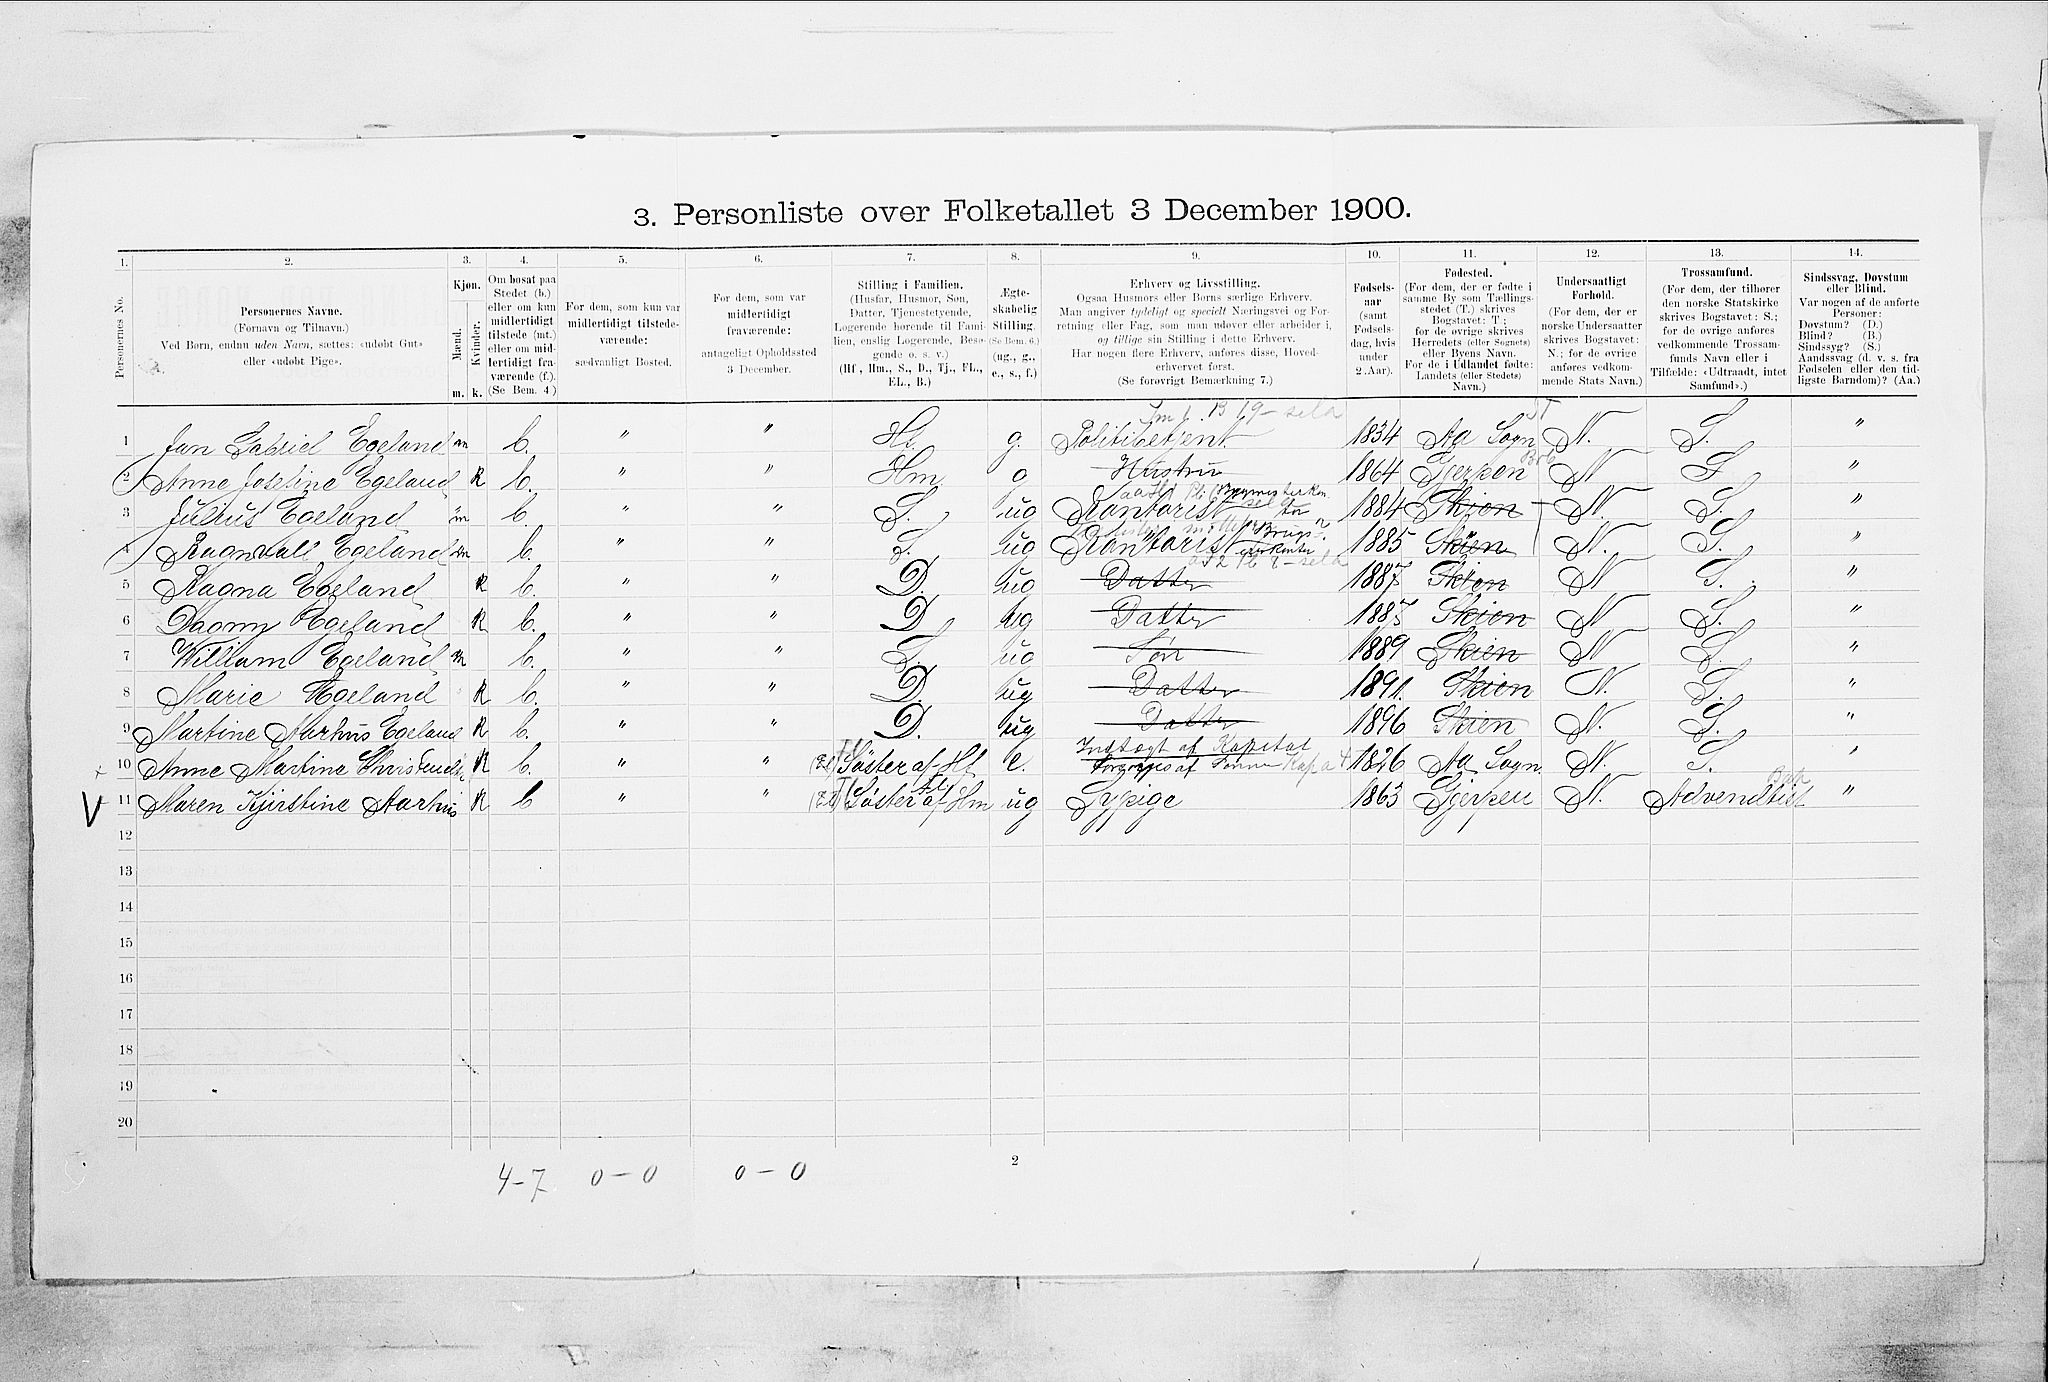 3. Personliste over Folketallet 3 December 1900.
1. 2. 3. 4. 5. 6. 7. 8. 9. 10. 11. 12. 13. 14.
Personernes No.
Personernes Navne.
(Fornavn og Tilnavn.)
Ved Børn, endnu uden Navn, sættes: «udøbt Gut»
eller «udøbt Pige».
Kjøn.
Mænd.
Kvinder.
m. k.
Om bosat paa
Stedet (b.)
eller om kun
midlertidigt
tilstede (mt.)
eller om mid-
lertidigt fra-
værende (f.).
(Se Bem. 4)
For dem, som kun var
midlertidigt tilstede-
værende:
sædvanligt Bosted.
For dem, som var
midlertidigt
fraværende:
antageligt Opholdssted
3 December.
Stilling i Familien.
(Husfar, Husmor, Søn,
Datter, Tjenestetyende,
Logerende hørende til Fami-
lien, enslig Logerende, Besø-
gende o. s. v.)
(Hf, Hm., S., D., Tj., FL.,
EL., B.)
Ægte-
skabelig
Stilling.
(Se Bem. 6.)
(ug., g.,
e., s., f.)
Erhverv og Livsstilling.
Ogsaa Husmors eller Børns særlige Erhverv.
Man angiver tydeligt og specielt Næringsvei og For-
retning eller Fag, som man udøver eller arbeider i,
og tillige sin Stilling i dette Erhverv.
Har nogen flere Erhverv, anføres disse, Hoved-
erhvervet først.
(Se forøvrigt Bemærkning 7.)
Fødsels-
aar
(samt
Fødsels-
dag, hvis
under
2 Aar).
Fødested.
(For dem, der er fødte i
samme By som Tællings-
stedet (T.) skrives
Bogstavet: T;
for de øvrige skrives
Herredets (eller Sognets)
eller Byens Navn.
For de i Udlandet fødte:
Landets (eller Stedets)
Navn.)
Undersaatligt
Forhold.
(For dem, der er
norske Undersaatter
skrives Bogstavet:
N.; for de øvrige
anføres vedkom-
mende Stats Navn.)
Trossamfund.
(For dem, der tilhører
den norske Statskirke
skrives Bogstavet: S.;
for de øvrige anføres
vedkommende Trossam-
funds Navn eller i
Tilfælde: «Udtraadt, intet
Samfund».)
Sindssvag, Døvstum
eller Blind.
Var nogen af de anførte
Personer:
Døvstum? (D.)
Blind? (B.)
Sindssyg? (S.)
Aandssvag (d. v. s. fra
Fødselen eller den tid-
ligste Barndom)? (Aa.)
1 Jan Gabriel Egeland m b. " " Hf g. Politibetjent 1834 Aa Sogn N. S. "
2 Anne Josefine Egeland K b. " " Hm g Hustru 1864 Gjerpen N S "
3 Julius Egeland m b. " " S. ug Kontorist 1884 Skien N. S. "
4 Ragnvall Egeland m b. " " S. ug Kontorist 1885 Skien N. S. "
5 Ragna Egeland K b. " " D. ug Datter 1887 Skien N S. "
6 Dagny Egeland K b. " " D ug Datter 1887 Skien N S. "
7 William Egeland m b. " " S. ug Søn 1889 Skien N S. "
8 Marie Egeland K b. " " D. ug Datter 1891. Skien N. S. "
9 Martine Aarhus Egeland K b. " " D. ug Datter 1896 Skien N. S. "
Indtægt af Kapital
10 Anne Martine K b. " " Søster af Hf e. 1826 Aa Sogn N. S. "
V 11 Maren Kjirstine Aarhus K b " " Søster af Hm ug Sypige 1863 Gjerpen N. Advendtist "
12
13
14
15
16
17
18
19
20
2
4-7 0-0 0-0